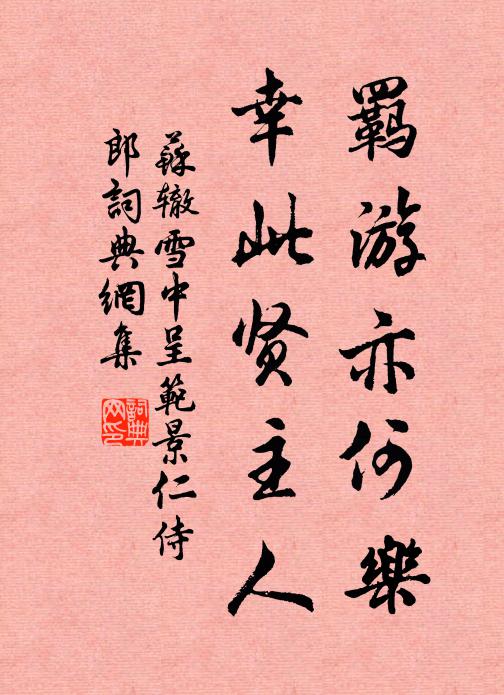 羁游亦何樂
幸此贤主人
蘇辙雪中呈範景仁侍
郎詞典網集
詞典网印